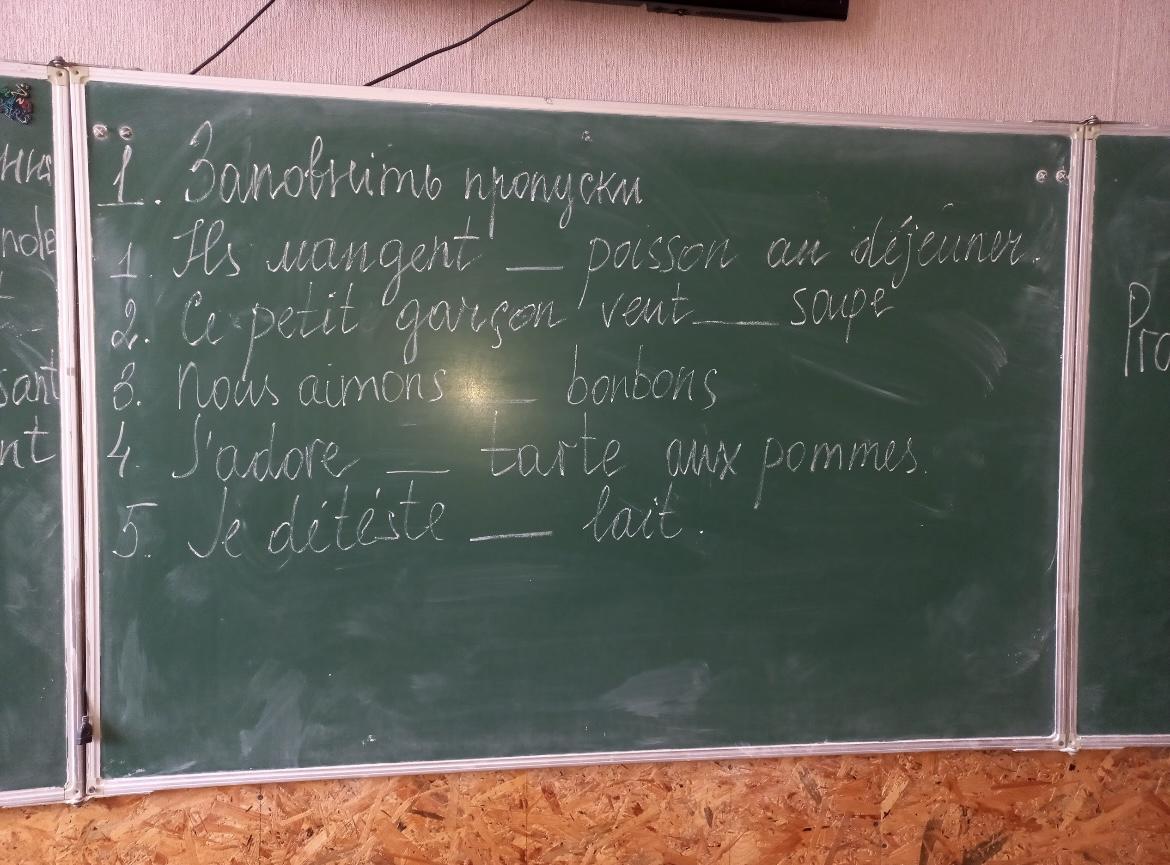 1. Заповніть пропуски
1. Ils mangent __ poisson au déjeuner.
2. Ce petit garçon veut ___ soupe
3. Nous aimons __ bonbons
4. J'adore __ tarte aux pommes.
5. Je détéste ___ lait.